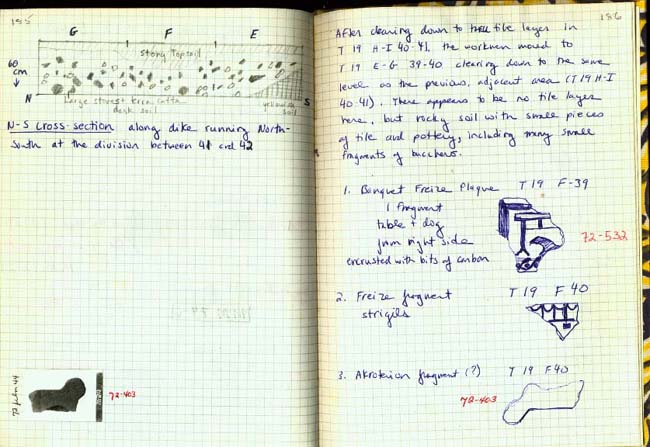 185
G F E
stony Topsoil
60
cm
N
S
Large stones + terra cotta
dark soil
yellowish
soil
N-S cross-section along dike running North-
South at the division between 41 and 42
72-403
186
After clearing down to the tile layer in
T 19 H-I 40-41, the workmen moved to
T 19 E-G 39-40 clearing down to the same
level as the previous, adjacent area (T 19 H-I
40-41). There appears to be no tile layer
here, but rocky soil with small pieces
of tile and pottery, including many small
fragments of bucchero.
1. Banquet Freize Plaque T 19 F-39
1 fragment
table + dog
from right side
encrusted with bits of carbon
72-532
2. Freize fragment T 19 F 40
strigils
3. Akroterion fragment (?) T 19 F 40
72-403